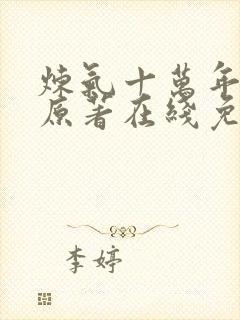 煉氣十萬年
原著在綫免
李婷